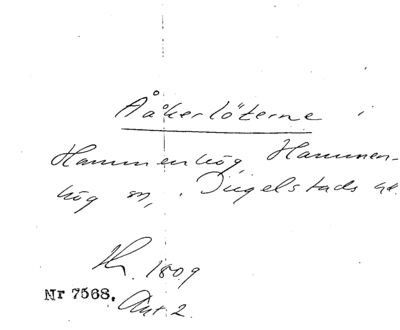 Ååkerlöterne i
Hammenhög, Hammen-
hög sn, Ingelstads hd.
1809
Nr 7568. Akt 2.